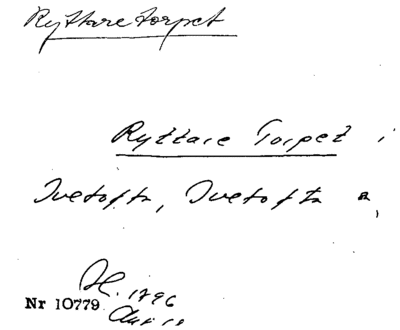 Ryttaretorpet
Ryttare Torpet i
Ivetofta, Ivetofta
H. 1896
Nr 10779